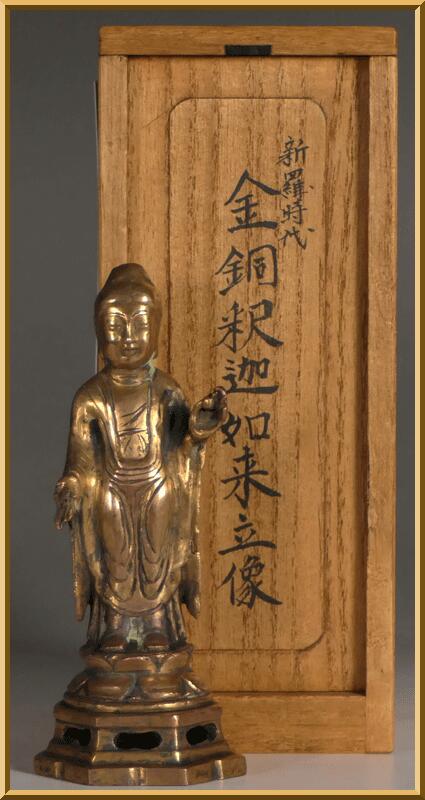 新羅時代
金銅釈迦如来立像